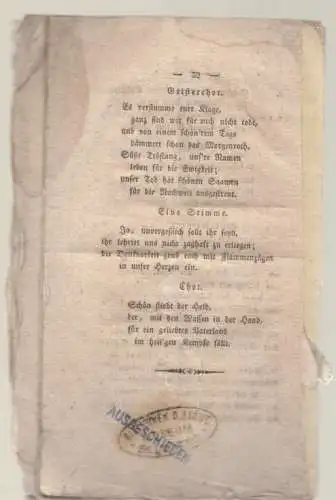 — 32 —
Geisterchor.
Es verstumme eure Klage,
ganz sind wir für euch nicht todt,
und von einem schön'rem Tage
dämmert schon das Morgenroth.
Süße Tröstung, uns're Namen
leben für die Ewigkeit;
unser Tod hat schönen Saamen
für die Nachwelt ausgestreut.
Eine Stimme.
Ja, unvergeßlich sollt ihr seyn,
ihr lehrtet uns nicht zaghaft zu erliegen;
die Dankbarkeit grub euch mit Flammenzügen
in unser Herzen ein.
Chor.
Schön stirbt der Held,
der, mit den Waffen in der Hand,
für ein geliebtes Vaterland
im heil'gen Kampfe fällt.
AUSGESCHIEDEN